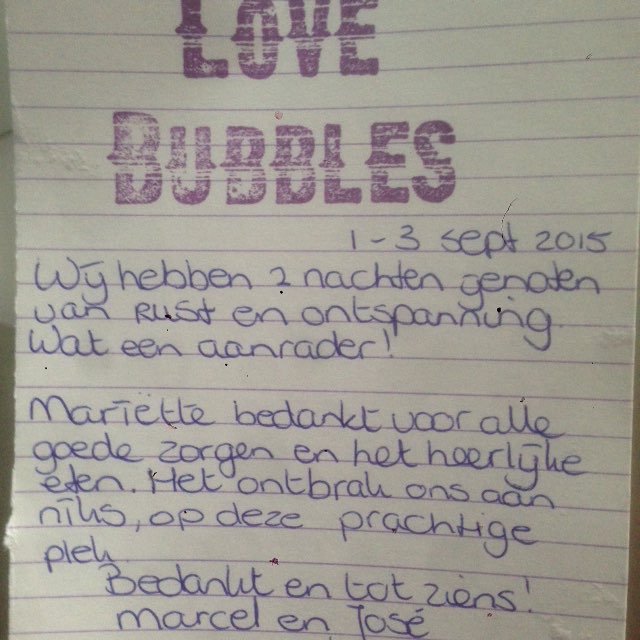 LOVE
BUBBLES
1-3 sept 2015
Wij hebben 2 nachten genoten
van Rust en ontspanning.
Wat een aanrader!
Mariëtte bedankt voor alle
goede zorgen en het heerlijke
eten. Het ontbrak ons aan
niks, op deze prachtige
plek.
Bedankt en tot ziens!
Marcel en José